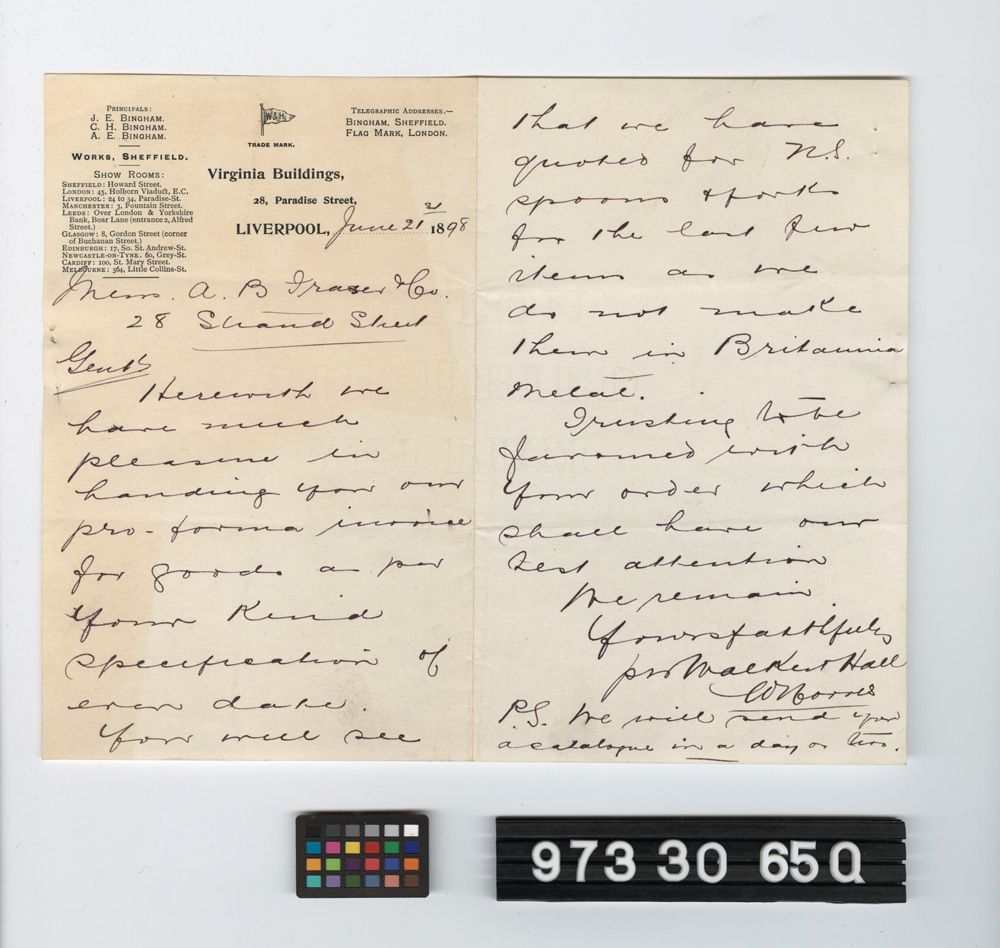 PRINCIPALS:
J. E. BINGHAM.
C. H. BINGHAM.
A. E. BINGHAM.
WORKS, SHEFFIELD.
SHOW ROOMS:
SHEFFIELD: Howard Street.
LONDON: 45, Holborn Viaduct, E.C.
LIVERPOOL: 24 to 34, Paradise-St.
MANCHESTER: 3, Fountain Street.
LEEDS: Over London & Yorkshire
Bank, Boar Lane (entrance 2, Alfred
Street.)
GLASGOW: 8, Gordon Street (corner
of Buchanan Street.)
EDINBURGH: 17, So. St. Andrew-St.
NEWCASTLE-ON-TYNE. 60, Grey-St.
CARDIFF: 100, St. Mary Street.
MELBOURNE: 364, Little Collins-St.
W&H
TRADE MARK.
TELEGRAPHIC ADDRESSES.—
BINGHAM, SHEFFIELD.
FLAG MARK, LONDON.
Virginia Buildings,
28, Paradise Street,
LIVERPOOL, June 21 st 1898
Messrs. A. B Fraser & Co.
28 Strand Street
Gents
Herewith we
have much
pleasure in
handing your our
pro-forma invoice
for goods as per
your Kind
specification of
even date.
You will see
that we have
quoted for N.S.
spoons & forks
for the last few
items as we
do not make
them in Britannia
Metal.
Trusting to be
favoured with
your order which
shall have our
best attention
We remain
Yours faithfully
pro Walker & Hall
P.S. We will send you
a catalogue in a day or two.
973 30 65Q